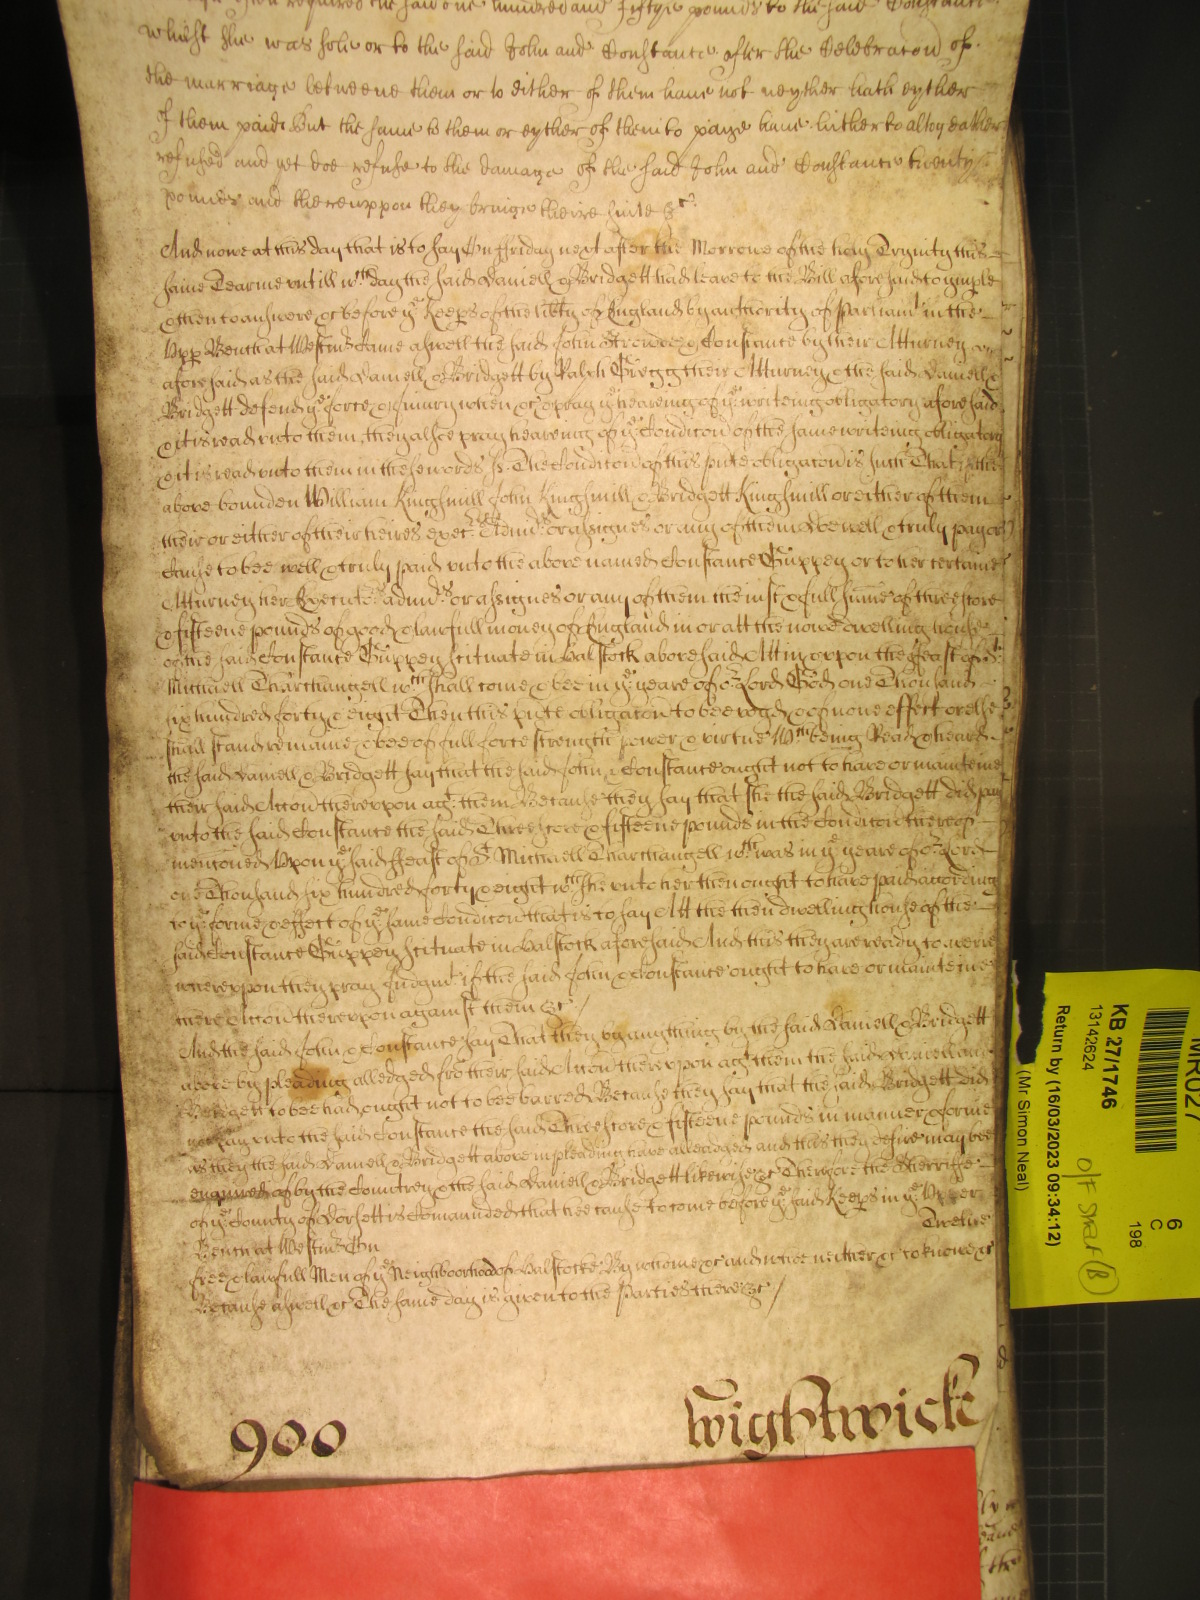 often required the said one hundred and fiftye pounds to the said Constance
whilst she was sole or to the said John and Constance after the Celebracon of
the marriage betweene them or to either of them have not neyther hath eyther
of them paid. But the same to them or eyther of them to paye have hitherto altogeather
refused and yet doe refuse to the damage of the said John and Constance twenty
pounds and thereuppon they bringe theire suite &c.
And nowe at this day that is to say On ffriday next after the Morrowe of the holy Trynity this
same Tearme untill wch day the said Daniell & Bridgett had leave to the Bill aforesaid to imple
& then to answere &c before ye Keeps of the libty of England by authority of Parliamt in the
Upp Bench at Westmr Came aswell the said John & Constance by their Atturney
aforesaid as the said Daniell & Bridgett by Ralph Gregg their Atturney & the said Daniell &
Bridgett defend ye force & injury when &c & pray ye heareing of ye writeing obligatory aforesaid
& it is read unto them, they alsoe pray heareing of ye Condicon of the same writeing obligatory
& it is read unto them in these words ss The Condicon of this psnte obligacon is such That if the
above bounden William Kingsmill John Kingsmill & Bridgett Kingsmill or either of them
their or either of their heires execrs Admrs or assignes or any of them doe well & truly pay or
cause to bee well & truly paid unto the above named Constance Guppey or to her certaine
Atturney her Executrs admrs or assignes or any of them the iust & full sume of three score
& fifteene pounds of good & lawfull money of England in or att the nowe dwelling house
of the said Constance Guppey scituate in Halstock abovesaid Att in or upon the ffeast of St
Michaell Tharchangell wch shall come & bee in ye yeare of or Lord God one Thousand
six hundred forty & eight Then this psnte obligacon to bee voyd & of none effect or else
shall stand remaine & bee of full force strength power & virtue Wch being Read & heard
the said Daniell & Bridgett say that the said John & Constance ought not to have or mainteine
their said Accon thereupon agt them Because they say that she the said Bridgett did pay
unto the said Constance the said Three score & fifteene pounds in the Condicon thereof
mencioned Upon ye said ffeast of St Michaell Tharchangell wch was in ye yeare of or Lord
one Thousand six hundred forty & eight wch she unto her then ought to have paid according
to ye forme & effect of ye same Condicon that is to say Att the then dwelling house of the
said Constance Guppey scituate in Halstock aforesaid And this they are ready to averre
whereupon they pray Judgmt if the said John & Constance ought to have or mainteine
there Accon thereupon against them &c /
And the said John & Constance say That they by any thing by the said Daniell & Bridgett
above by pleading alledged fro their said Accon thereupon agt them the said Daniell and
Bridgett to bee had ought not to bee barred Because they say that the said Bridgett did
not pay unto the said Constance the said Three score & fifteene pounds in manner & forme
as they the said Daniell & Bridgett above in pleading have alleadged and this they desire may bee
enquired of by the Countrey & the said Daniell & Bridgett likewise &c Therefore the Sherriffe
of ye County of Dorsett is Comaunded that hee cause to come before ye said Keeps in ye Upper
Bench at Westmr On Twelve
free & lawfull Men of ye Neighboorhood of Halstocke By whome &c and whoe neither &c to knowe &c
Because aswell &c The same day is given to the Parties there &c /
900 Wightwicke
MR027
KB 27/1746
13142624
Return by (16/03/2023 09:34:12)
(Mr Simon Neal)
6
C
198
O/F Shelf (B)